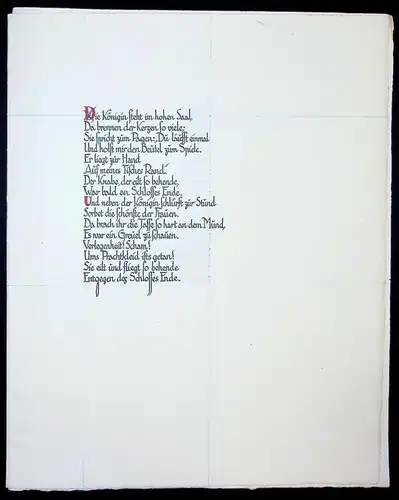 Die Königin steht im hohen Saal,
Da brennen der Kerzen so viele;
Sie spricht zum Pagen: „Du läufst einmal
Und holst mir den Beutel zum Spiele.
Er liegt zur Hand
Auf meines Tisches Rand.“
Der Knabe, der eilt so behende,
War bald an Schlosses Ende.
Und neben der Königin schlürft zur Stund
Sorbet die schönste der Frauen.
Da brach ihr die Tasse so hart an dem Mund,
Es war ein Greuel zu schauen.
Verlegenheit! Scham!
Ums Prachtkleid ists getan!
Sie eilt und fliegt so behende
Entgegen des Schlosses Ende.